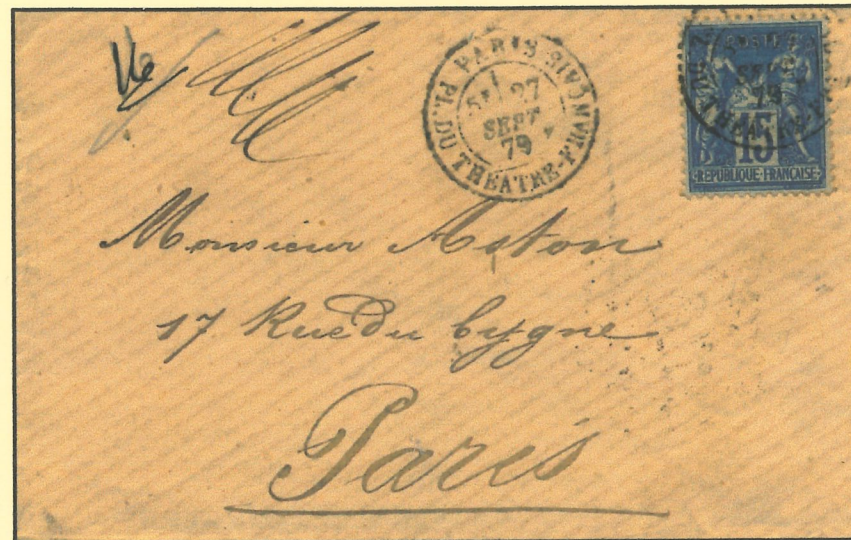 PARIS
PL. DU THÉATRE-FRANÇAIS
27
SEPT
79
15
RÉPUBLIQUE FRANÇAISE
Monsieur Aston
17 Rue du Cygne
Paris